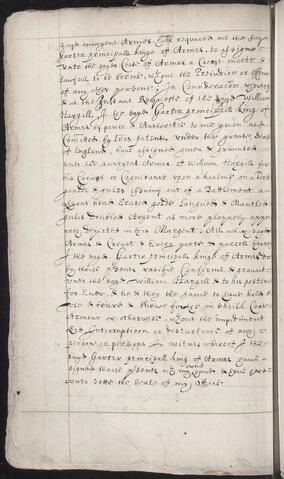 sayd auncyent Armes hath required me the sayd
Garter principall king of Armes, to assigne
unto the sayd Coate of Armes a Creast meete &
lawfull to be borne, wthout the Prejudice or offence
of any other persone: In Consideration whereof
& at the Instant Requeste of the sayd William
Hargill I the sayd Garter principall king of
Armes by power & Authoritie to me given and
Comitted by lrs patents under the greate Seale
of England, have assigned given & graunted
unto the auncyent Armes of William Hargill for
his Creast or Cognizance upon a healme on a
gules Issuing out of a Battlement
gould Langued &
gules doubled Argent as more playnely appereth
depicted in this Margent. All which sayd
Armes & Creast & Every parte & parcell thereof
I the sayd Garter principall king of Armes do
by theise psents ratifie Confirme & graunt
unto the sayd William Hargill & to his posteritie
for Ever, & he & they the same to have hold
use & beare & shewe forthe in Shield Coate
Armour or otherwise, wthout the impediment
let Interruption or disturbance of any
person or persons. In witnes whereof I the
sayd Garter principall king of Armes have
signed theise psents wth my owne hand & have
unto sette the Seale of my Office